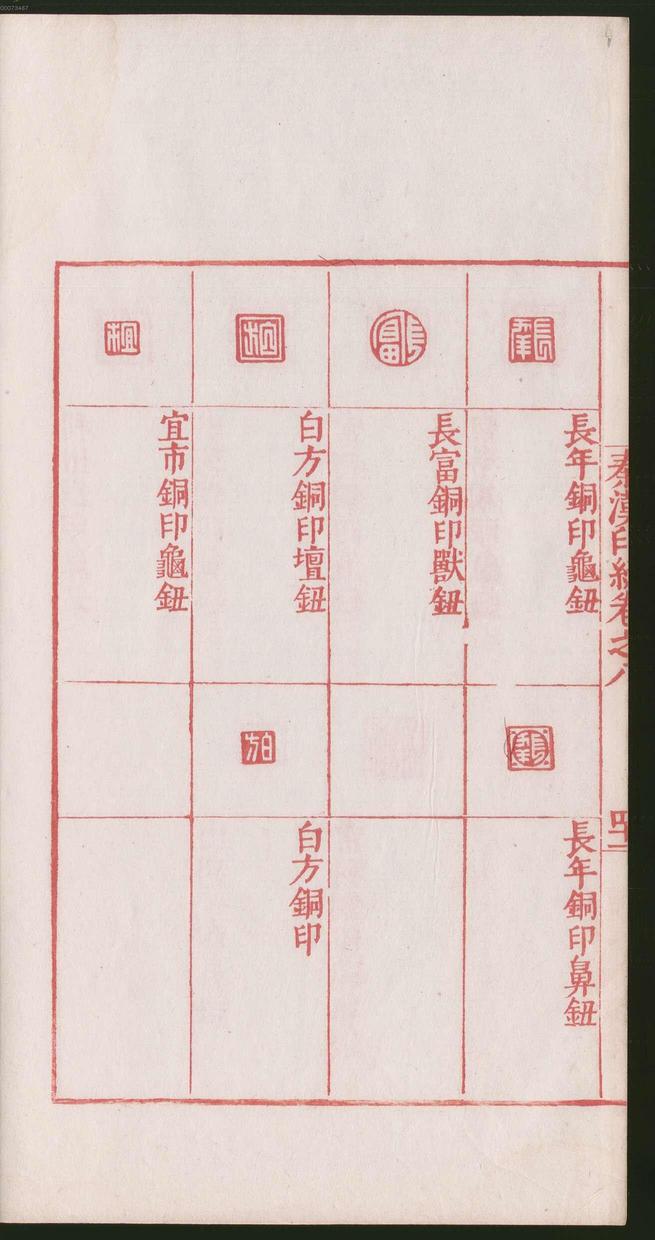 00073467
秦漢印統卷之八
四十一
長年銅印龜鈕
長年銅印鼻鈕
長富銅印獸鈕
白方銅印壇鈕
白方銅印
宜市銅印龜鈕